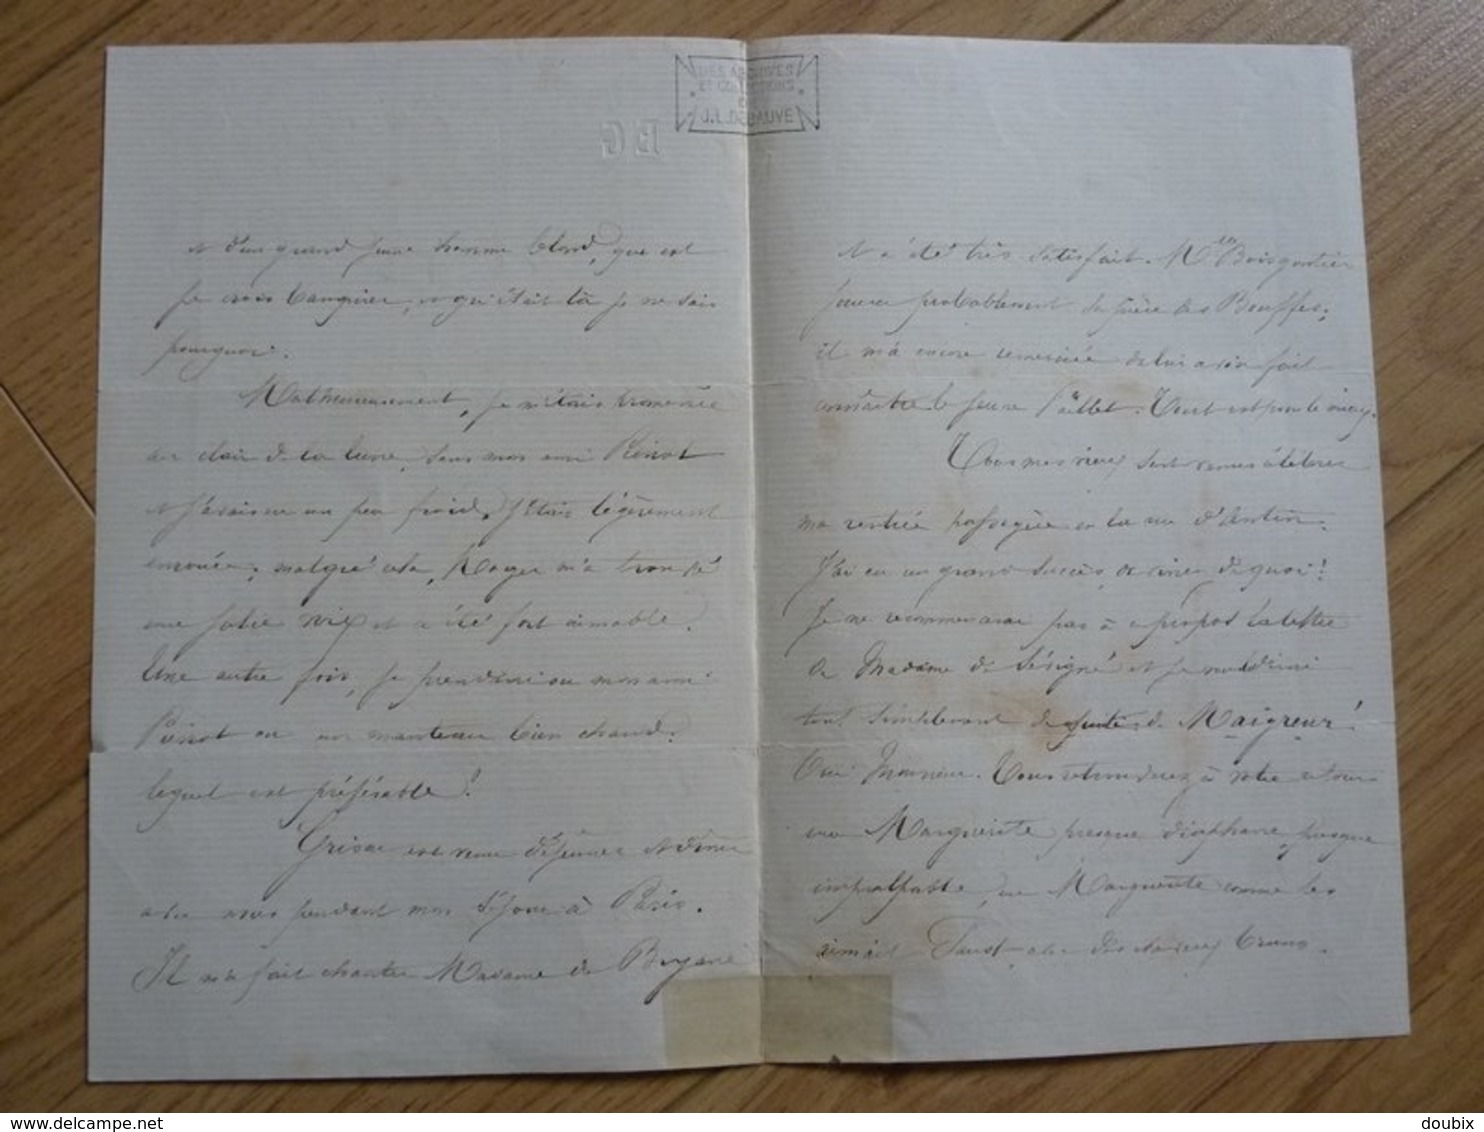 DES ARCHIVES
ET COLLECTIONS
DE
J.L. DEBAUVE
et d'un grand jeune homme blond, que est
je crois banquier, et qui était là je ne sais
pourquoi.
Malheureusement, je m'étais promenée
au clair de la lune, sous mon ami Pierrot
et j'avais eu un peu froid. J'étais légèrement
enrouée; malgré cela, m'a trouvé
une jolie voix et a été fort aimable.
Une autre fois, je prendrai ou mon ami
Pierrot ou un manteau bien chaud.
lequel est préférable!
Grisar est venu déjeuner et dîner
avec nous pendant mon séjour à Paris.
Il m'a fait chanter Madame de
et a été très satisfait. Mlle Boisgontier
jouera probablement sa pièce aux Bouffes;
il m'a encore remerciée de lui avoir fait
connaître le jeune Tout est pour le mieux.
Tous mes vieux sont venus célébrer
ma rentrée passagère en la rue d'Antin.
J'ai eu un grand succès, devinez de quoi!
Je ne recommencerai pas à ce propos la lettre
de Madame de Sévigné et je vous dirai
tout simplement de suite, de Maigreur!
Oui Monsieur. Vous retrouverez à votre retour
une Marguerite presque diaphane, presque
impalpable, une Marguerite comme les
aimait Faust, avec des cheveux bruns.
delcampe.net
doubix